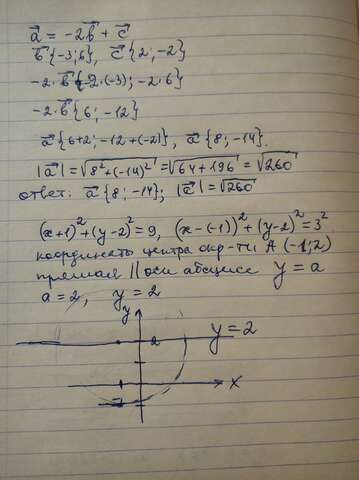 a⃗ = -2b⃗ + c⃗
b⃗{-3;6}, c⃗{2;-2}
-2·b⃗{-2·(-3);-2·6}
-2·b⃗{6;-12}
a⃗{6+2;-12+(-2)}, a⃗{8;-14}.
|a⃗|=√8²+(-14)²=√64+196=√260
ответ: a⃗{8;-14}; |a⃗|=√260
(x+1)²+(y-2)²=9, (x-(-1))²+(y-2)²=3²
координаты центра окр-ти A(-1;2)
прямая || оси абсцисс y=a
a=2, y=2
y
y=2
2
x